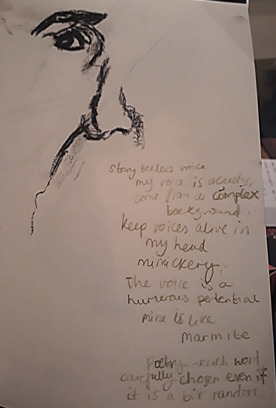 Story tellers voice
my voice is acoustic
come from a complex
background.
Keep voices alive in
my head
mimickery.
The voice is a
humerous potential
mine is like
marmite
Poetry - each word
carefully chosen even if
it is a bit random